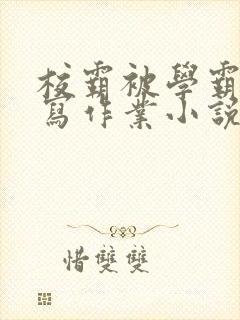 校霸被學霸
寫作業小說
惜雙雙